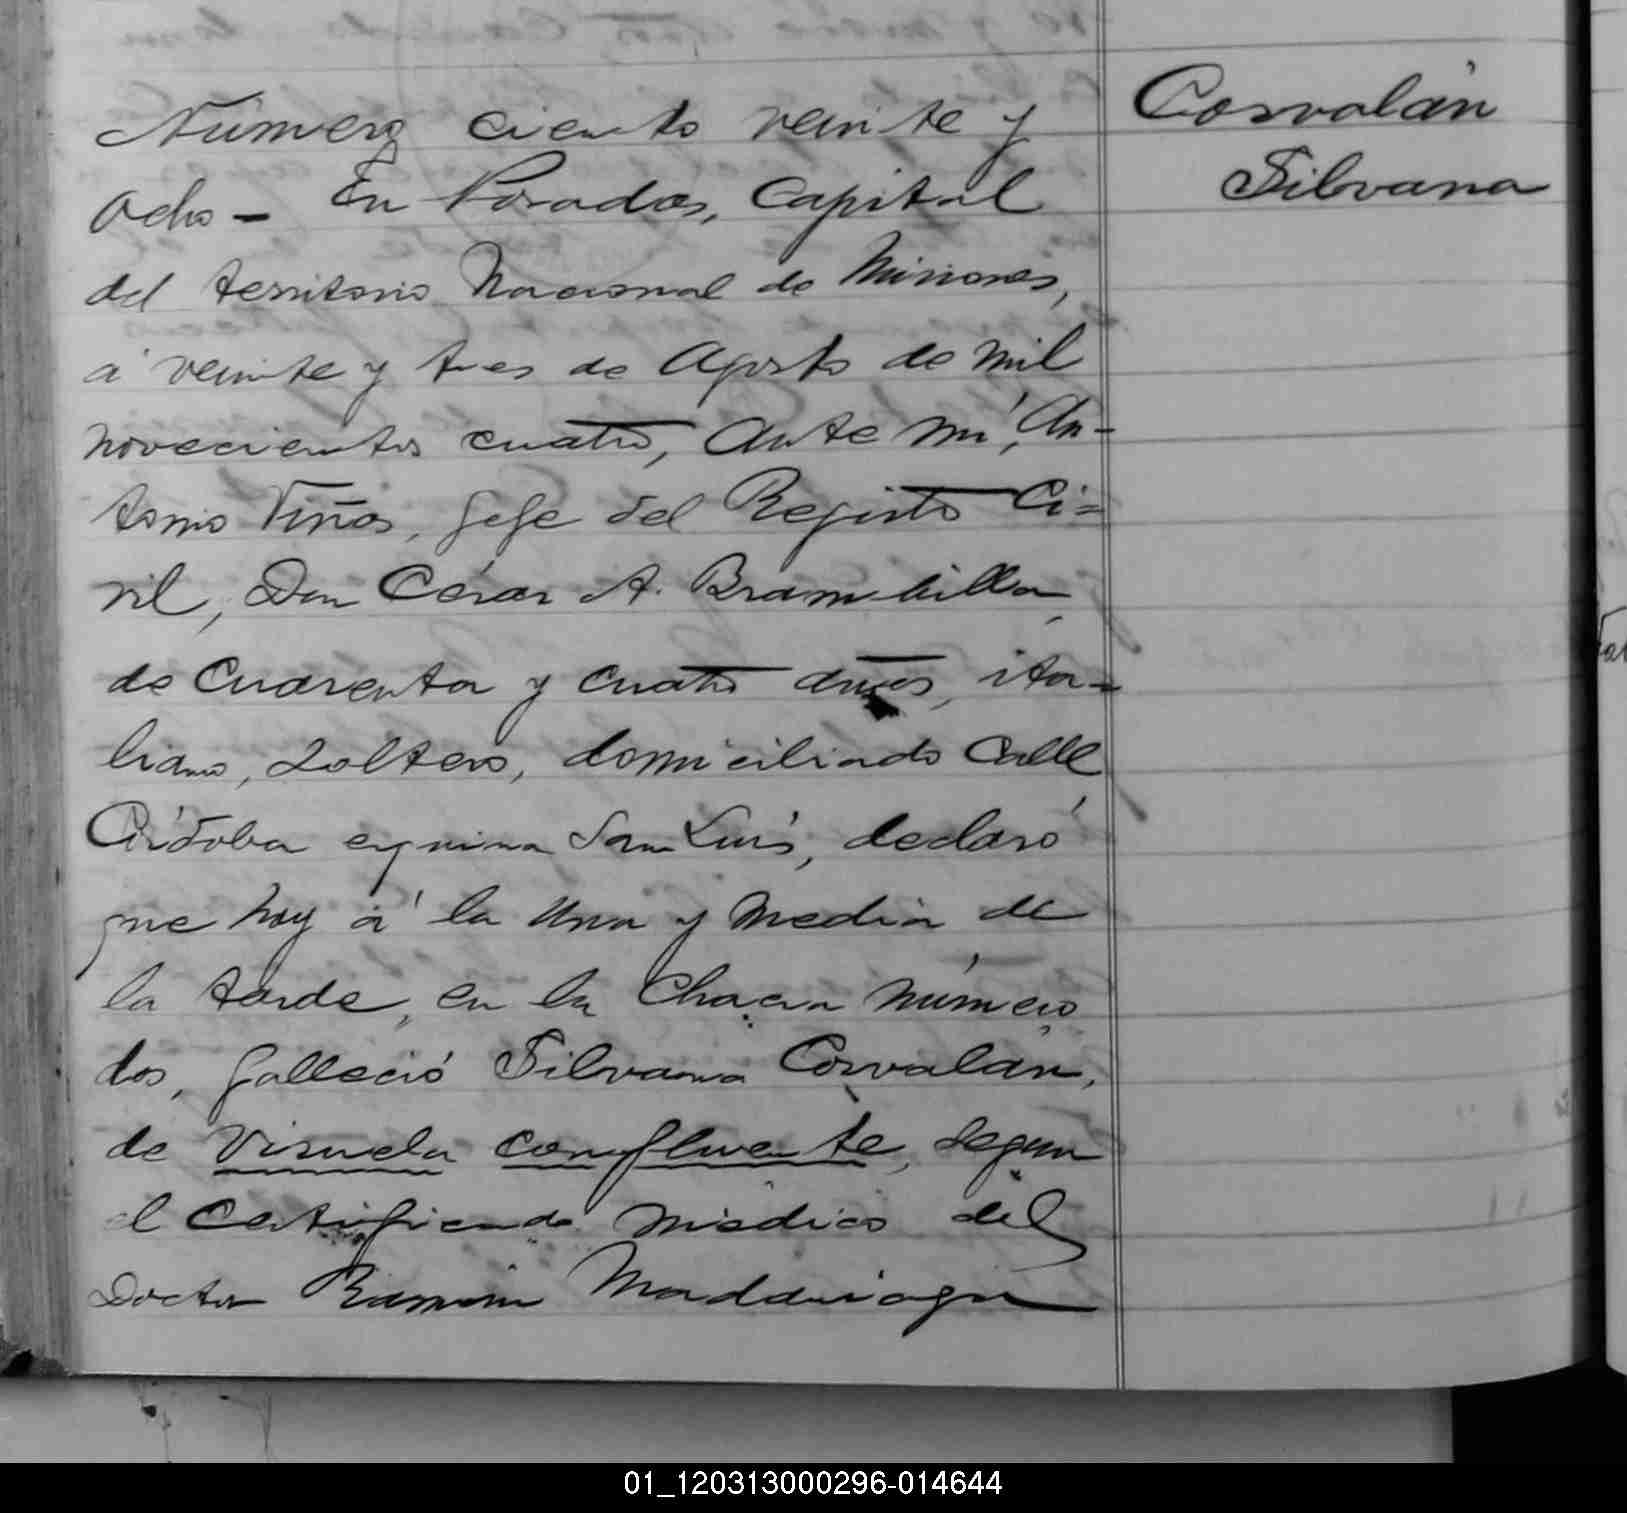 Número ciento veinte y
ocho - En Posadas, Capital
del territorio Nacional de Misiones,
á veinte y tres de Agosto de mil
novecientos cuatro, Ante mí, An-
tonio Viñas, Gefe del Registro Ci=
vil, Don César A. Brambilla,
de cuarenta y cuatro años, ita-
liano, soltero, domiciliado Calle
Córdoba esquina San Luis, declaró
que hoy á la una y media de
la tarde, en la Chacra número
dos, falleció Silvana Corvalán,
de viruela confluente, segun
el certificado médico del
Doctor Ramón Maddariaga
Corvalán
Silvana
01_120313000296-014644